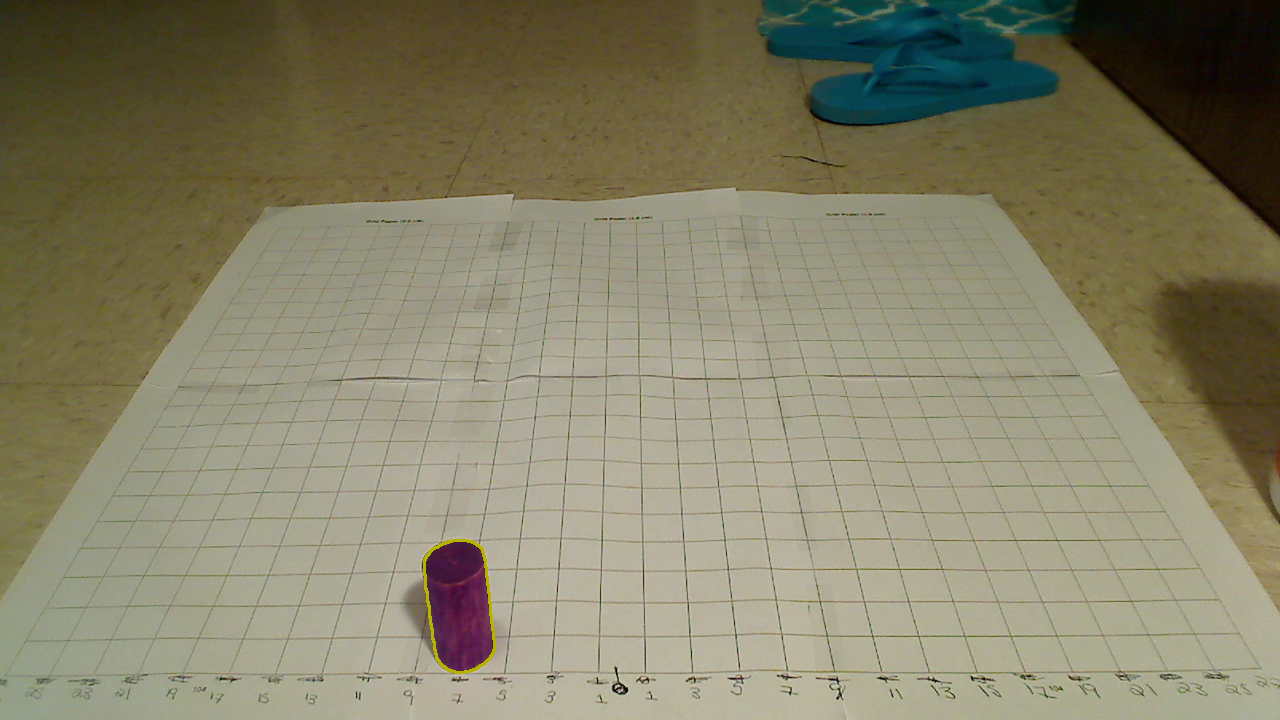 Grid Paper (2.5 cm) Grid Paper (2.5 cm) Grid Paper (2.5 cm)
25 23 21 19 17 15 13 11 9 7 5 3 1 0 1 3 5 7 9 11 13 15 17 19 21 23 25